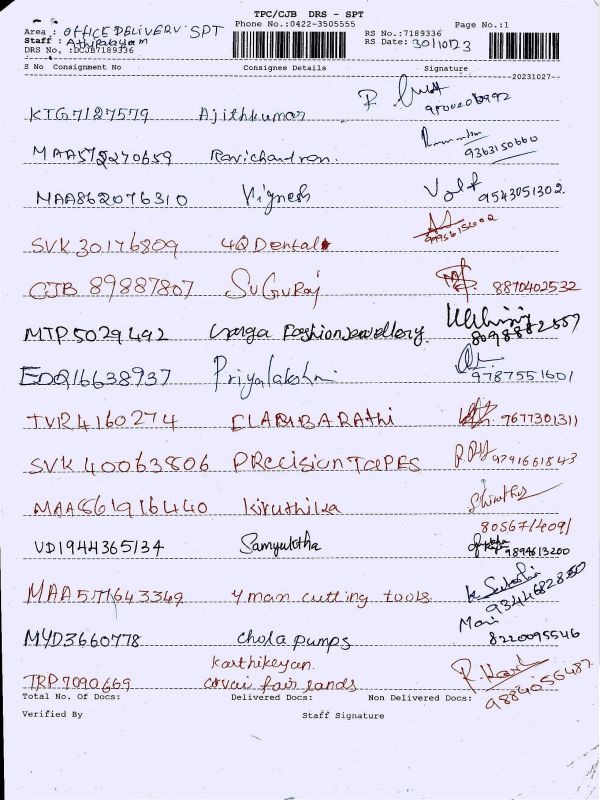 TPC/CJB DRS - SPT
Phone No.:0422-3505555
Page No.:1
Area : OFFICE DELIVERY SPT
Staff :
DRS No. :DCJB7189336
RS No.:7189336
RS Date: 30/10/23
S No Consignment No Consignee Details Signature
20231027
KTG7127579 Ajithkumar
MAA572270659 Ravichandran. 9363150660
MAA862076310 Vignesh 9543051302
SVK30176809 4Q Dental
CJB 89887807 SUGURaj 8870402532
MTP5029492 Fashion Jewellery
EDQ16638937 Priyalakshmi 9787551601
TVR4160274 ELAMBARAthi 9677301311
SVK40063806 PRecision TaPES 9791661843
MAA861916440 kiruthika
8056714091
VD1944365134 Samyuktha 9894613200
MAA571643349 4 man cutting tools 9344682850
MYD3660778 chola pumps Mani 8220095546
karthikeyan.
TRP7090669 covai fair lands 9884056487
Total No. Of Docs: Delivered Docs: Non Delivered Docs:
Verified By Staff Signature